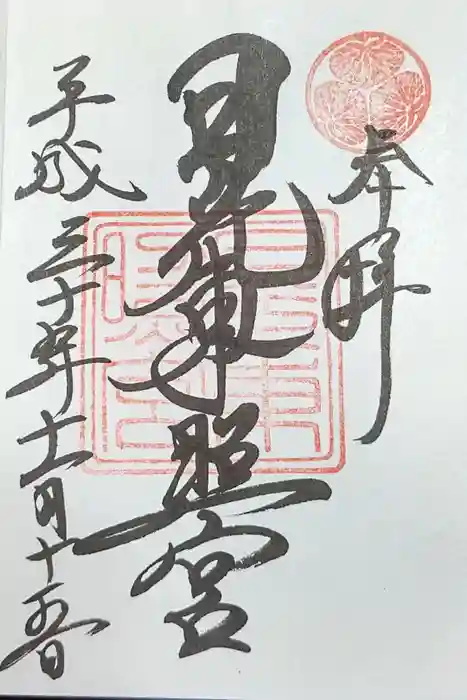 奉拝
日光東照宮
平成三十年十一月十五日